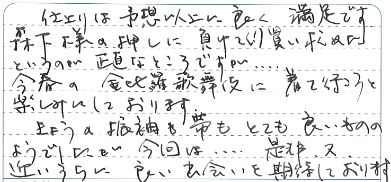 仕上りは予想以上に良く 満足です
森下様の押しに負けて(?)買い求めた
というのが正直なところですが‥‥
今春の金比羅歌舞伎に着て行こうと
楽しみにしております
上ようの振袖も帯もとても良いものの
ようでしたが 今回は‥‥ 是非又
近いうちに良い出会いを期待しております